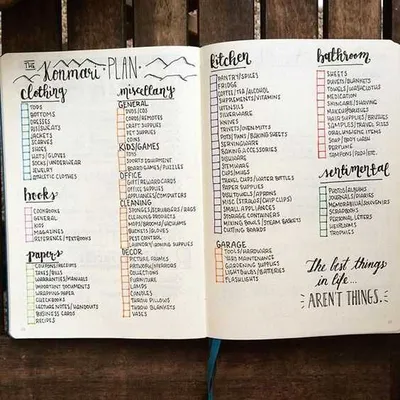 THE
Konmari · PLAN ·
clothing
TOPS
BOTTOMS
DRESSES
DISWEATS
JACKETS
SCARVES
SHOES
HATS/GLOVES
SOCKS/UNDERWEAR
JEWELRY
ATHLETIC CLOTHES
books
COOKBOOKS
GENERAL
KIDS
MAGAZINES
REFERENCE/TEXTBOOKS
papers
COUPONS/RECEIPTS
TAXES/BILLS
WARRANTIES/MANUALS
IMPORTANT DOCUMENTS
WRAPPING PAPER
CHECKBOOKS
LECTURE NOTES/HANDOUTS
BUSINESS CARDS
RECIPES
miscellany
GENERAL
DVDS/CDS
CORDS/REMOTES
CRAFT SUPPLIES
PET SUPPLIES
COINS
KIDS/GAMES
TOYS
SPORTS EQUIPMENT
BOARD GAMES/PUZZLES
OFFICE
GIFT/REWARD CARDS
OFFICE SUPPLIES
APPLIANCES/COMPUTERS
CLEANING
SPONGES/SCRUBBERS/RAGS
CLEANING PRODUCTS
MOPS/BROOMS/VACUUMS
BUCKETS/GLOVES
PEST CONTROL
LAUNDRY/IRONING SUPPLIES
DECOR
PICTURE FRAMES
ARTWORK/POSTERS
COLLECTIONS
FURNITURE
LAMPS
CANDLES
THROW PILLOWS
THROW BLANKETS
VASES
kitchen
PANTRY/SPICES
FRIDGE
COFFEE/TEA/ALCOHOL
SUPPLEMENTS/VITAMINS
UTENSILS
SILVERWARE
KNIVES
TRIVETS/OVEN MITTS
POTS/PANS/BAKING SHEETS
SERVINGWARE
BAKING ACCESSORIES
DISHWARE
STEMWARE
CUPS/MUGS
TRAVEL CUPS/WATER BOTTLES
PAPER SUPPLIES
DISHTOWELS/APRONS
MISC (STRAWS/CHIP CLIPS)
SMALL APPLIANCES
STORAGE CONTAINERS
MIXING BOWLS/STEAM BASKETS
CUTTING BOARDS
GARAGE
TOOLS/HARDWARE
YARD MAINTENANCE
GARDENING SUPPLIES
LIGHTBULBS/BATTERIES
FLASHLIGHTS
bathroom
SHEETS
DUVETS/BLANKETS
TOWELS/WASHCLOTHS
MEDICATION
SKINCARE/SHAVING
MAKEUP/BRUSHES
HAIR SUPPLIES/BRUSHES
STYLING APPLIANCES
ORAL HYGIENE ITEMS
SOAP/BODY WASH
PERFUME
TAMPONS/PADS/ETC.
sentimental
PHOTOS/ALBUMS
JOURNALS/DIARIES
MEMORABILIA/SOUVENIRS
SCRAPBOOKS
PERSONAL LETTERS
HEIRLOOMS
TROPHIES
The best things
in life...
AREN'T THINGS.